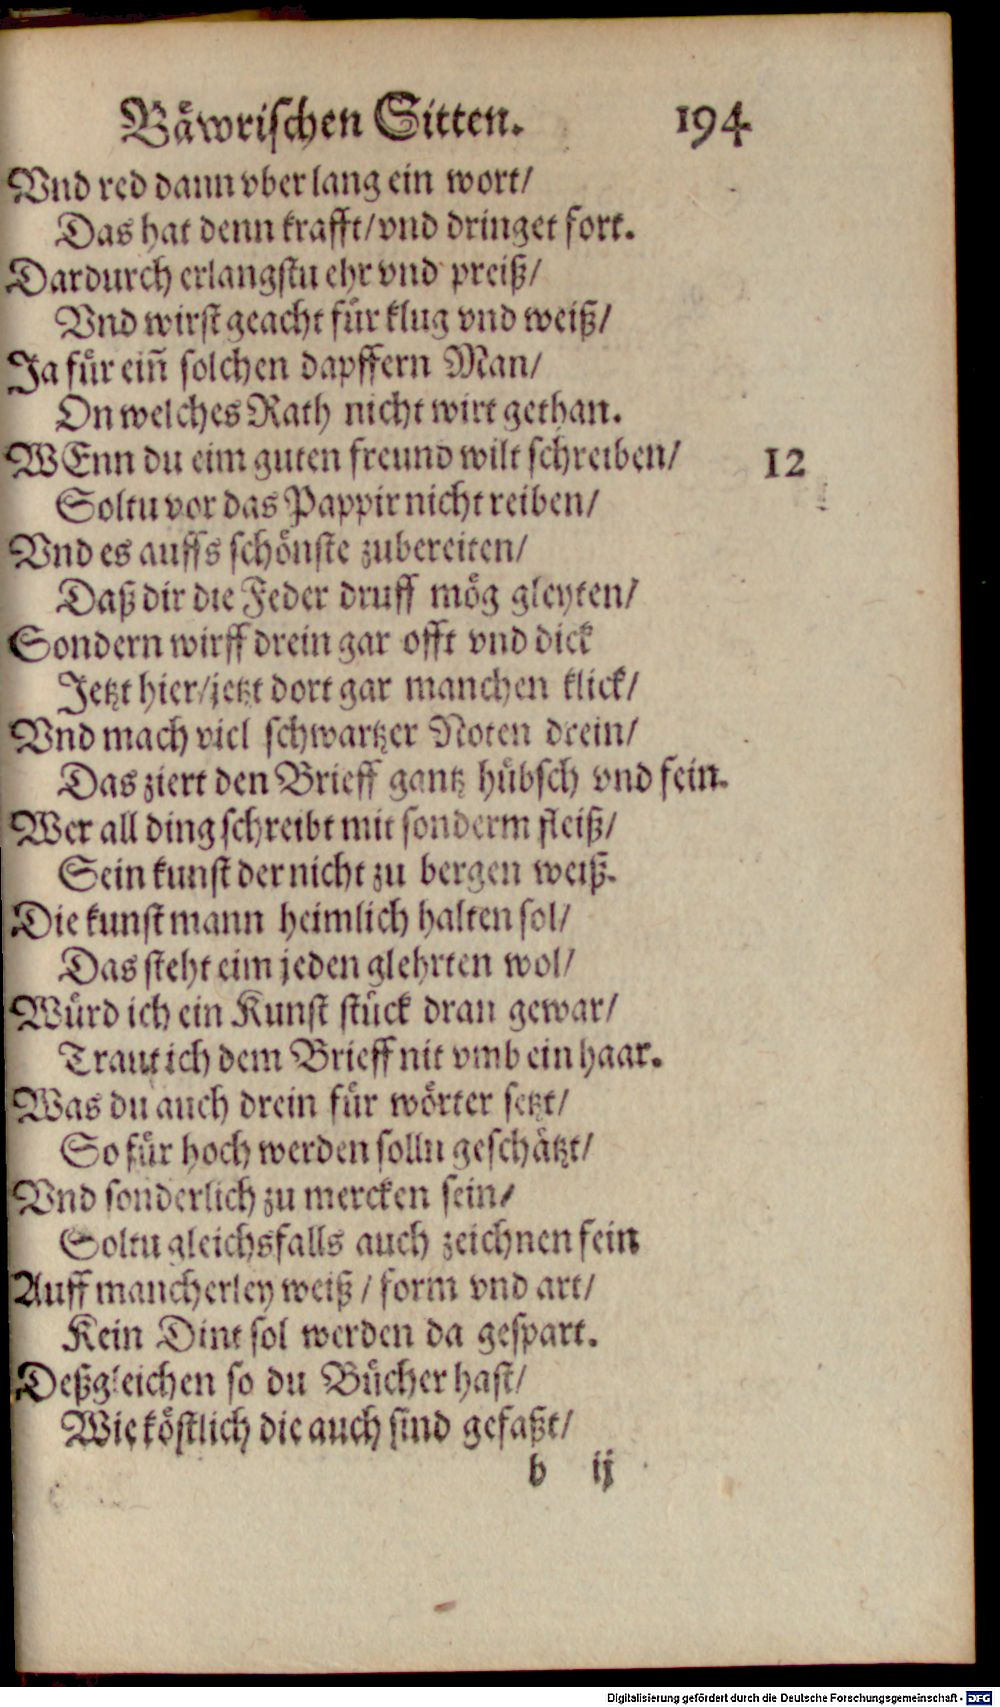 Bäwrischen Sitten. 194
Vnd red dann vber lang ein wort/
Das hat denn krafft/vnd dringet fort.
Dardurch erlangstu ehr vnd preiß/
Vnd wirst geacht für klug vnd weiß/
Ja für eiñ solchen dapffern Man/
On welches Rath nicht wirt gethan.
WEnn du eim guten freund wilt schreiben/ 12
Soltu vor das Pappir nicht reiben/
Vnd es auffs schönste zubereiten/
Daß dir die Feder druff mög gleyten/
Sondern wirff drein gar offt vnd dick
Jetzt hier/jetzt dort gar manchen klick/
Vnd mach viel schwartzer Noten drein/
Das ziert den Brieff gantz hübsch vnd fein.
Wer all ding schreibt mit sonderm fleiß/
Sein kunst der nicht zu bergen weiß.
Die kunst mann heimlich halten sol/
Das steht eim jeden glehrten wol/
Würd ich ein Kunst stück dran gewar/
Traut ich dem Brieff nit vmb ein haar.
Was du auch drein für wörter setzt/
So für hoch werden solln geschätzt/
Vnd sonderlich zu mercken sein/
Soltu gleichsfalls auch zeichnen fein
Auff mancherley weiß / form vnd art/
Kein Dint sol werden da gespart.
Deßgleichen so du Bücher hast/
Wie köstlich die auch sind gefaßt/
b ij
Digitalisierung gefördert durch die Deutsche Forschungsgemeinschaft - DFG